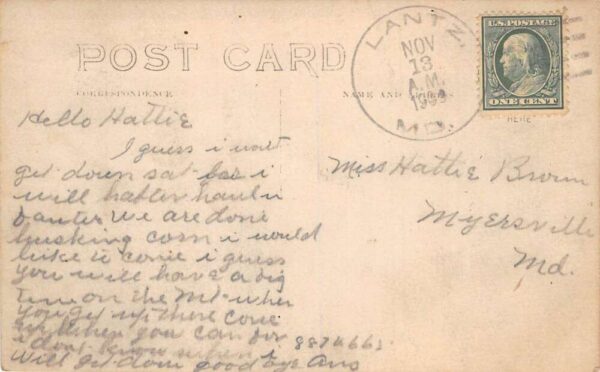 POST CARD
CORRESPONDENCE
NAME AND
HERE
LANTZ,
NOV
13
A.M.
1909
MD.
U.S. POSTAGE
ONE CENT
Hello Hattie
I guess i wont
get down sat i
will hafter
we are done
husking corn i would
like to come i guess
you will have a big
time on the Mt when
you get up there come
when you can for
i dont know when
will get down good bye Ans
Miss Hattie Brown
Myersville
Md.